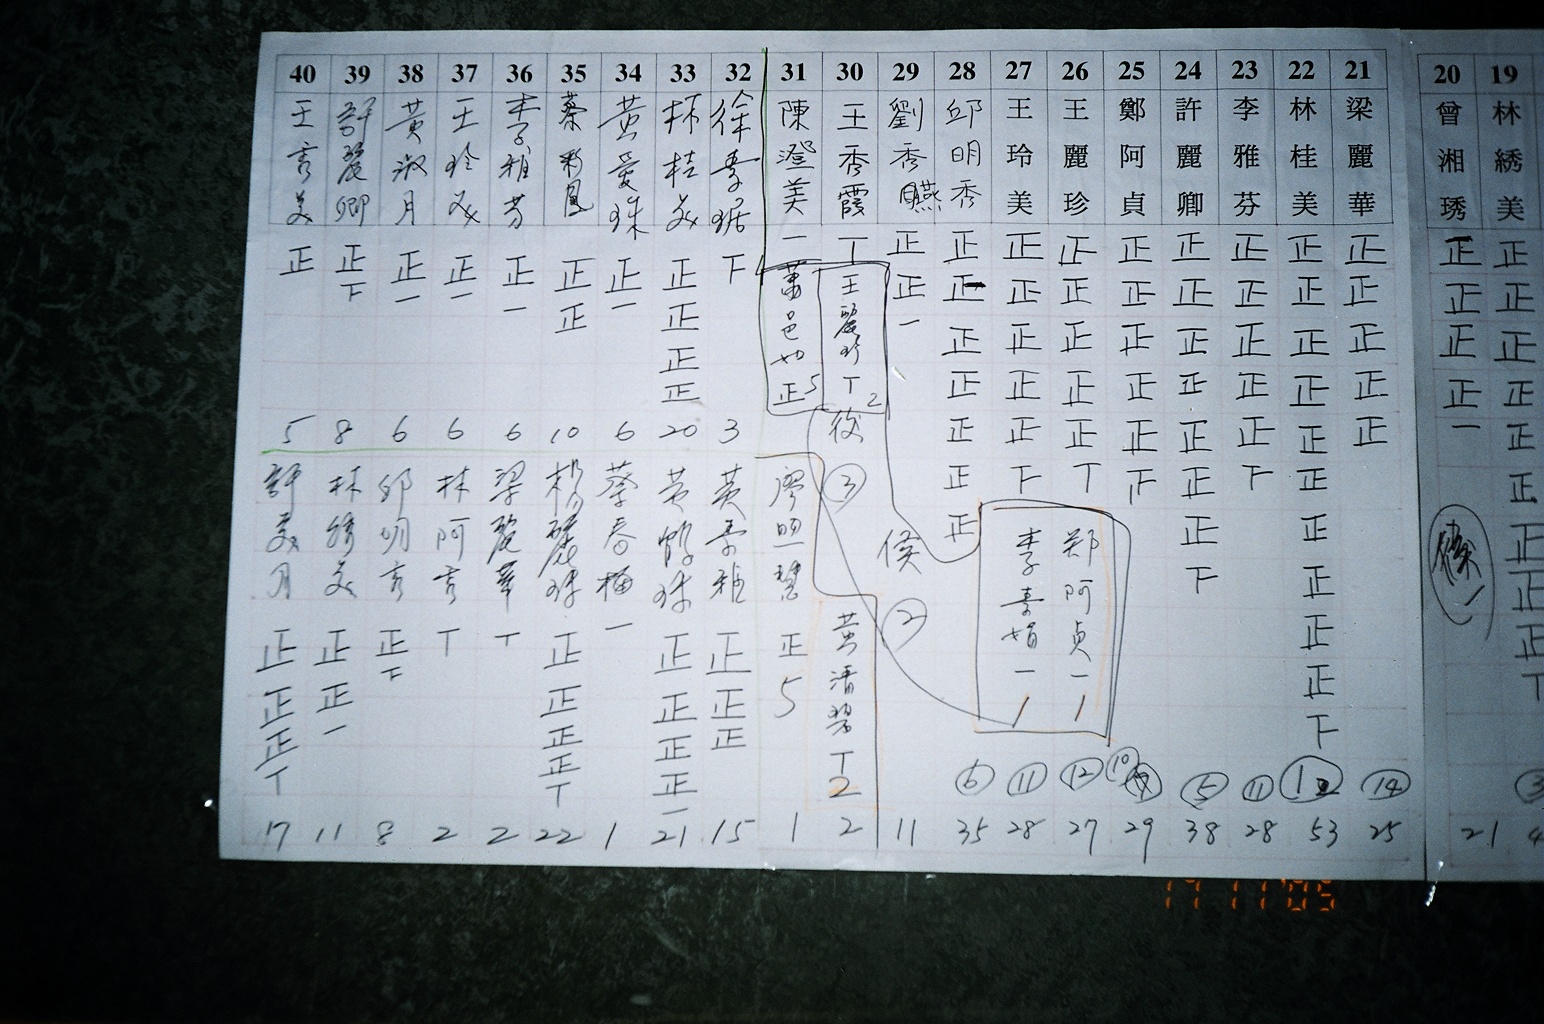 40 39 38 37 36 35 34 33 32 31 30 29 28 27 26 25 24 23 22 21 20 19
王秀美 許麗卿 黃淑月 王玲美 李雅芬 蔡彩鳳 黃愛珠 林桂美 徐素琚 陳澄美 王秀霞 劉秀 邱明秀 王玲美 王麗珍 鄭阿貞 許麗卿 李雅芬 林桂美 梁麗華 曾湘琇 林綉美
正 正下 正一 正一 正一 正正 正一 正正正正 下 一 丅 正正一 正正正正正正正 正正正正正下 正正正正正丅 正正正正正下 正正正正正正正下 正正正正正下 正正正正正正正正正正下 正正正正正 正正正正一
葉邑如 正 5
王麗珍 丅 2
5 8 6 6 6 10 6 20 3
後 ③
許美月 林綉美 邱明秀 林阿秀 梁麗華 楊麗珠 蔡春梅 黃鶴珠 黃素雅 廖照慧
正正正丅 正正一 正下 丅 丅 正正正正丅 一 正正正正一 正正正 正 5
黃清 丅 2
候 ②
李素娟 一 1
鄭阿貞 一 1
⑥ ⑪ ⑫ ⑩ ⑤ ⑪ ⑭
17 11 8 2 2 22 1 21 15 1 2 11 35 28 27 29 38 28 53 25 21